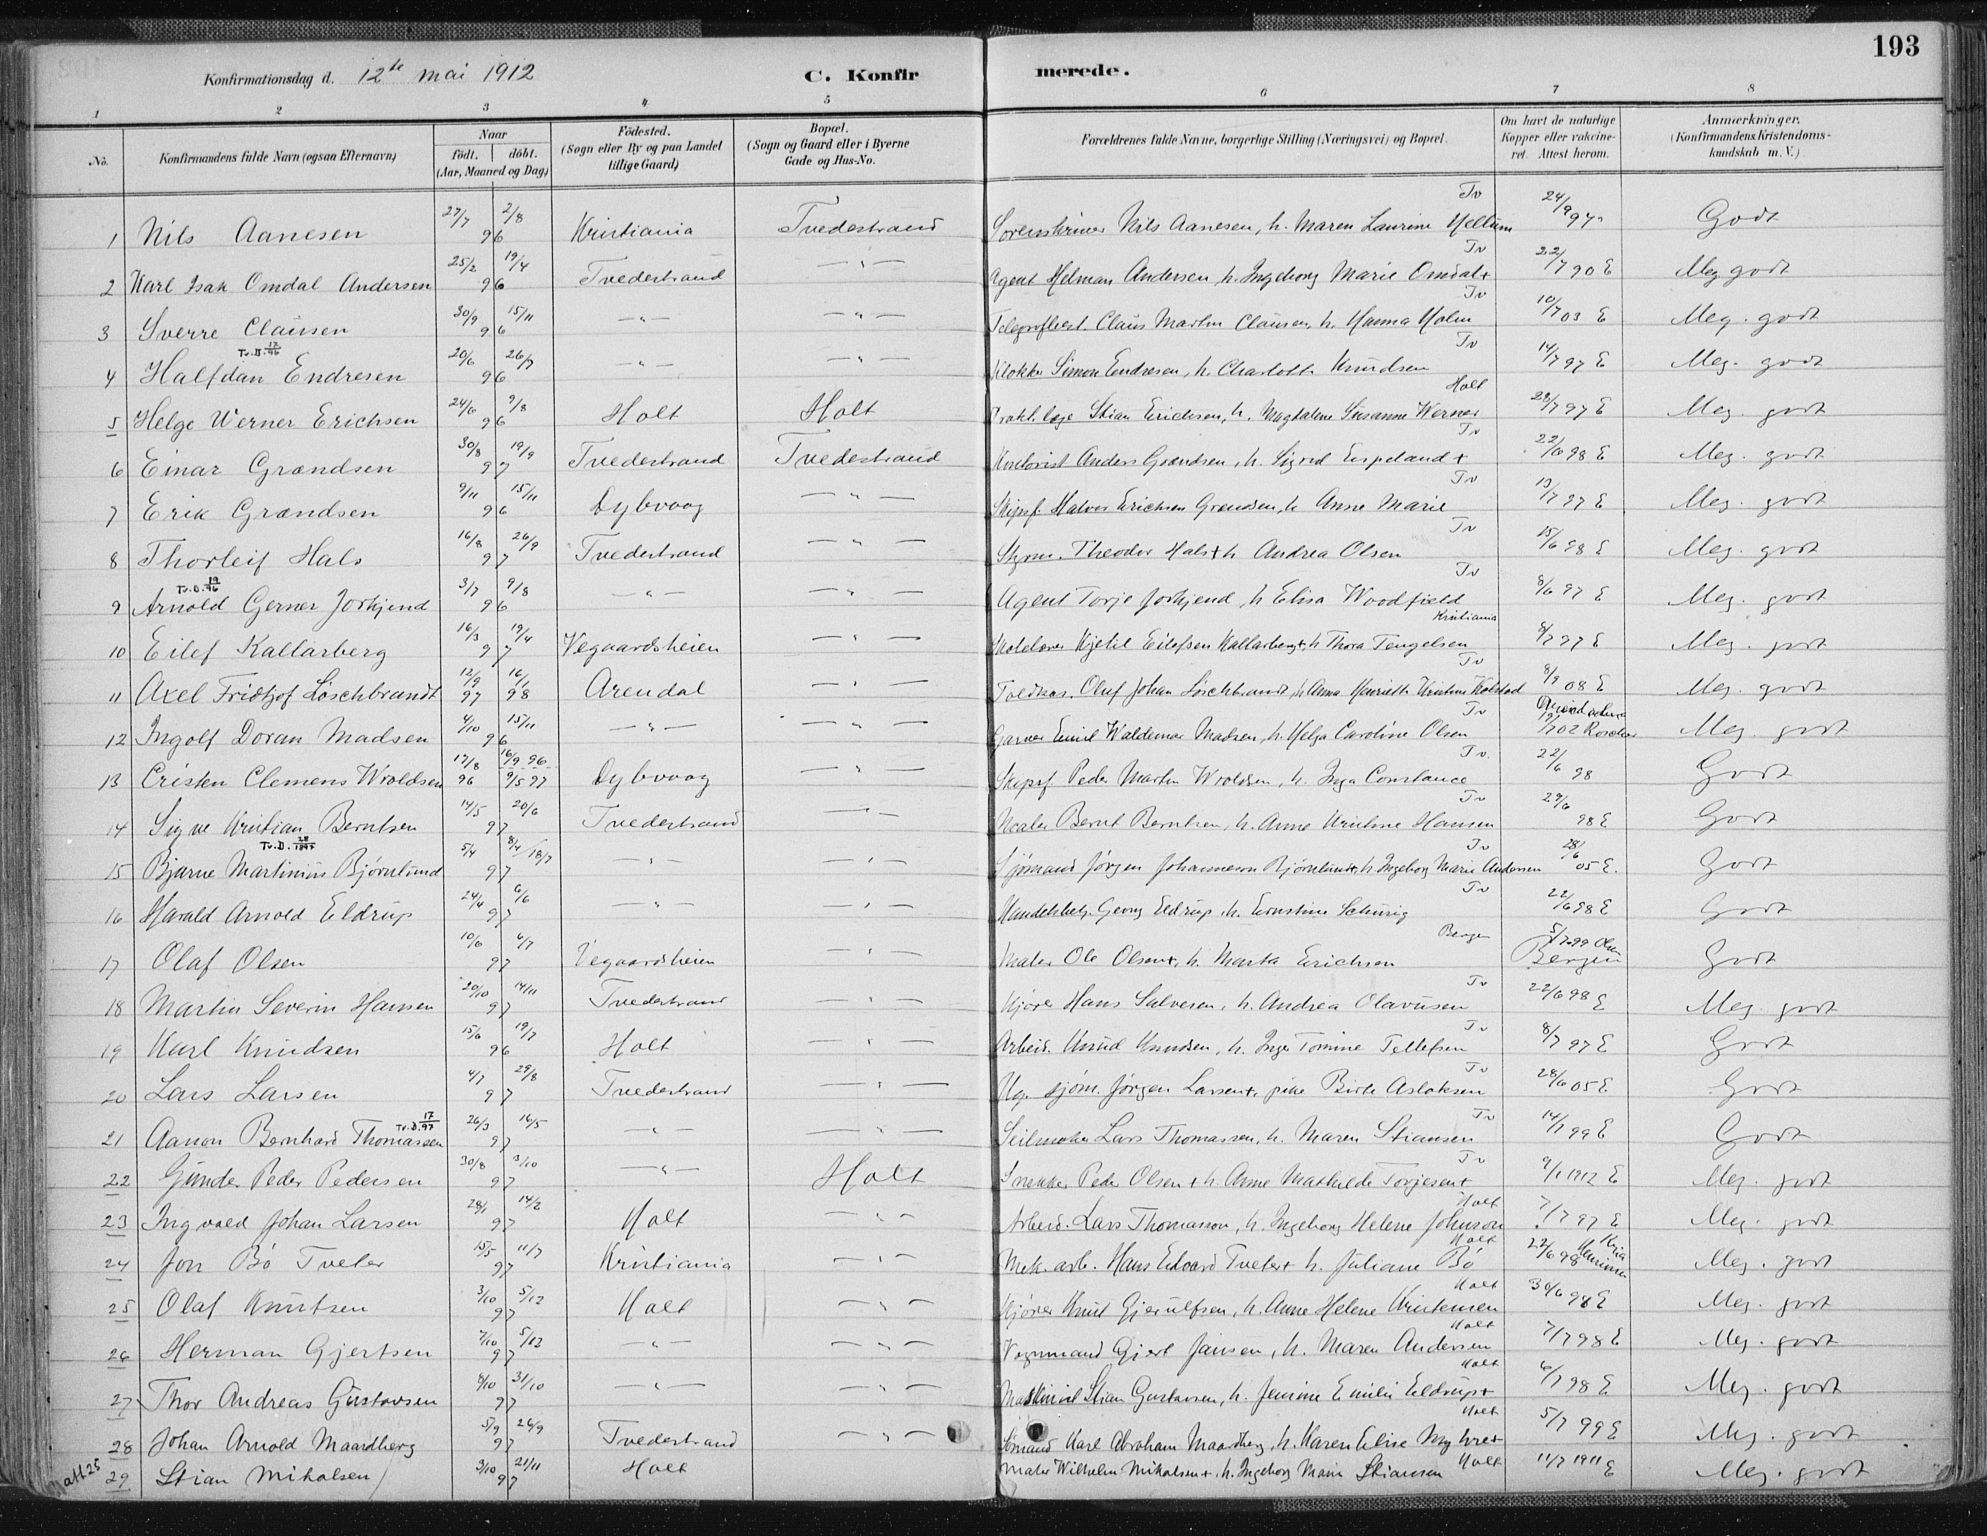 193
Konfirmationsdag d. 12te mai 1912 C. Konfirmerede.
1 2 3 4 5 6 7 8
No. Konfirmandens fulde Navn (ogsaa Efternavn) Naar födt. döbt. (Aar, Maaned og Dag) Födested. (Sogn eller By og paa Landet tillige Gaard) Bopæl. (Sogn og Gaard eller i Byerne Gade og Hus-No. Forældrenes fulde Navne, borgerlige Stilling (Næringsvei) og Bopæl. Om havt de naturlige Kopper eller vakcineret. Attest herom. Anmærkninger. (Konfirmandens Kristendomskundskab m. V.)
1 Nils Aanesen 27/7 2/8 96 Kristiania Tvedestrand Sorenskriver Nils Aanesen, h. Maren Laurine Mellum Tv 24/9 97 Godt
2 Karl Isak Omdal Andersen 25/2 19/4 96 Tvedestrand — " — Agent Helman Andersen, h. Ingeborg Marie Omdal + Tv 22/7 90 E Meg godt
3 Sverre Clausen 30/9 15/11 96 — " — — " — Claus Martin Clausen, h. Hanna Holm Tv 10/7 03 E Meg. godt
Tv.D. 17/96
4 Halfdan Endresen 20/6 26/7 96 — " — — " — Klokker Simon Endresen, h. Charlotte Knudsen Tv 14/7 97 E Meg. godt
5 Helge Werner Erichsen 24/6 9/8 96 Holt Holt Prakt. læge Stian Erichsen, h. Magdalene Susanne Werner Holt 28/7 97 E Meg. godt
6 Einar Grændsen 30/8 19/9 97 Tvedestrand Tvedestrand Anders Grændsen, h. Sigrid Espeland + Tv 22/6 98 E Meg. godt
7 Erik Grændsen 9/11 15/11 96 Dybvaag — " — Skipsf. Halvor Erichsen Grændsen, h. Anne Marie Tv 13/7 97 E Meg. godt
8 Thorleif Hals 16/8 26/9 97 Tvedestrand — " — Styrm. Theodor Hals + h. Andrea Olsen Tv 15/6 98 E Meg. godt
Tv.D. 19/96
9 Arnold Gerner Jorkjend 3/7 9/8 96 — " — — " — Agent Torje Jorkjend, h. Elisa Woodfield Tv 8/6 97 E Meg. godt
10 Eilef Kallarberg 16/3 19/4 97 Vegaardsheien — " — Kjetil Eilefsen Kallarberg +, h. Thora Tengelsen Kristiania 8/7 97 E Meg. godt
11 Axel Fridtjof Löschbrandt 12/9 97 16/1 98 Arendal — " — Toldkas. Oluf Johan Löschbrandt, h. Anna Henriette Kristine Kolstad Tv 8/9 08 E Meg. godt
12 Ingolf Doran Madsen 4/10 15/11 96 — " — — " — Garver Emil Waldemar Madsen, h. Helga Caroline Olsen Tv 02 Meg. godt
13 Cristen Clemens Wroldsen 17/8 96 16/9 96 9/5 97 Dybvaag — " — Skipsf. Peder Martin Wroldsen, h. Inga Constance Tv. 22/6 98 Godt
14 Signe Kristian Berntsen 14/5 20/6 97 Tvedestrand — " — Maler Bernt Berntsen, h. Anne Kristine Hansen Tv 29/6 98 E Godt
Tv.D. 28/1897
15 Bjarne Martinius Björnlund 5/4 8/4/18/7 97 — " — — " — Sjømand Jørgen Johannessen Bjørnlund +, h. Ingeborg Marie Andersen Tv 28/6 05 E. Godt
16 Harald Arnold Eldrup 24/4 6/6 97 — " — — " — Handelsbetj. Georg Eldrup, h. Ernstine Schurig Tv 22/6 98 E Godt
17 Olaf Olsen 10/6 6/7 97 Vegaardsheien — " — Maler Ole Olsen +, h. Marta Erichsen Bergen 5/7 99 Olsen Bergen Godt
18 Martin Severin Hansen 20/10 14/11 97 Tvedestrand — " — Kjører Hans Salvesen, h. Andrea Olavusen Tv 22/6 98 E Meg. godt
19 Karl Knudsen 15/6 19/7 96 Holt — " — Arbeid. Knud Knudsen, h. Inger Tomine Tellefsen Tv 8/7 97 E Godt
20 Lars Larsen 4/7 29/8 97 Tvedestrand — " — Ug. sjøm. Jørgen Larsen +, pike Birte Aslaksen Tv 28/6 05 E Godt
Tv.D. 17/97
21 Aanon Bernhard Thomassen 26/3 16/5 97 — " — — " — Seilmaker Lars Thomassen, h. Maren Stiansen Tv 14/7 99 E Godt
22 Gunder Peder Pedersen 30/8 3/10 97 — " — Holt Snekker Peder Olsen + h. Anne Mathilde Torjesen + Tv 9/1 1912 E Meg. godt
23 Ingvald Johan Larsen 28/1 14/2 97 Holt — " — Arbeid. Lars Thomasson, h. Ingeborg Helene Johnson Holt 7/7 97 E Meg. godt
24 Jon Bö Tveter 15/5 11/7 97 Kristiania — " — Mek. arb. Hans Edvard Tveter + h. Juliane Bö Holt 22/6 98 Kria Meg. godt
25 Olaf Knutsen 3/10 5/12 97 Holt — " — Kjører Knut Gjerulfsen, h. Anne Helene Kristensen Holt 30/6 98 E Meg. godt
26 Herman Gjertsen 7/10 5/12 97 — " — — " — Vognmand Gjert Jansen, h. Maren Andersen Holt 7/7 98 E Meg. godt
27 Thor Andreas Gustavsen 8/10 31/10 97 — " — — " — Maskinist Stian Gustavsen, h. Jensine Emilie Eldrup + Holt 6/7 98 E Meg. godt
28 Johan Arnold Maardberg 5/9 26/9 97 Tvedestrand — " — Sømand Karl Abraham Maardberg, h. Karen Elise Myhre + Holt 5/7 99 E Meg. godt
29 Stian Mikalsen 3/10 21/11 97 Holt Maler Wilhelm Mikalsen +, h. Ingeborg Marie Stiansen Holt 11/7 1911 E Meg. godt